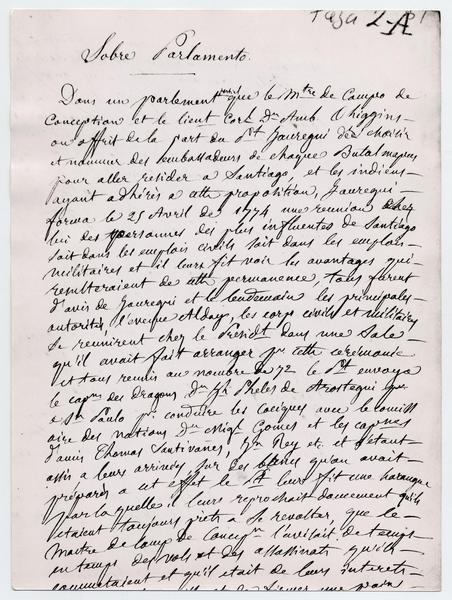 Taza 2-A
Sobre Parlamento.
Dans un parlement que le Mtre de Campo de
Conception et le lieut Corl Dn Amb. O higgins
on offrit de la part du Pt Jauregui de choisir
et nommer des embassadeurs de chaque Butalmapus
pour aller resider a Santiago, et les indiens
ayant adhérés a cette proposition, Jauregui
forma le 25 Avril de 1774 une reunion chez
lui des personnes des plus influentes de Santiago
soit dans les emplois civils soit dans les emplois
militaires et il leurs fit voir les avantages qui
resulteraient de cette permanence, tous furent
d'avis de Jauregui et le lendemain les principales
autorités, l'eveque Alday, les corps civils et militaires
se reunirent chez le Presidt dans une Sale
qu'il avait fait arranger pr cette cérémonie
et tous reunis au nombre de 72 le Pt envoya
le capne des Dragons Dn
e Sn Paulo pr conduire les caciques avec le comiss
aire des nations Dn Migl Gomes et les capnes
d'amis Thomas Santivanes, Rey et. et s'etant
assis a leur arrivées sur des bancs qu'on avait
préparés a cet effet le Pt leurs fit une harangue
par laquelle il leurs reprochait doucement qu'ils
etaient toujours prets a se revolter, que le
Maitre de Camp de Concepn l'avisait de temps
en temps des vols et des assassinats qu'ils
commetaient et qu'il etait de leurs interets